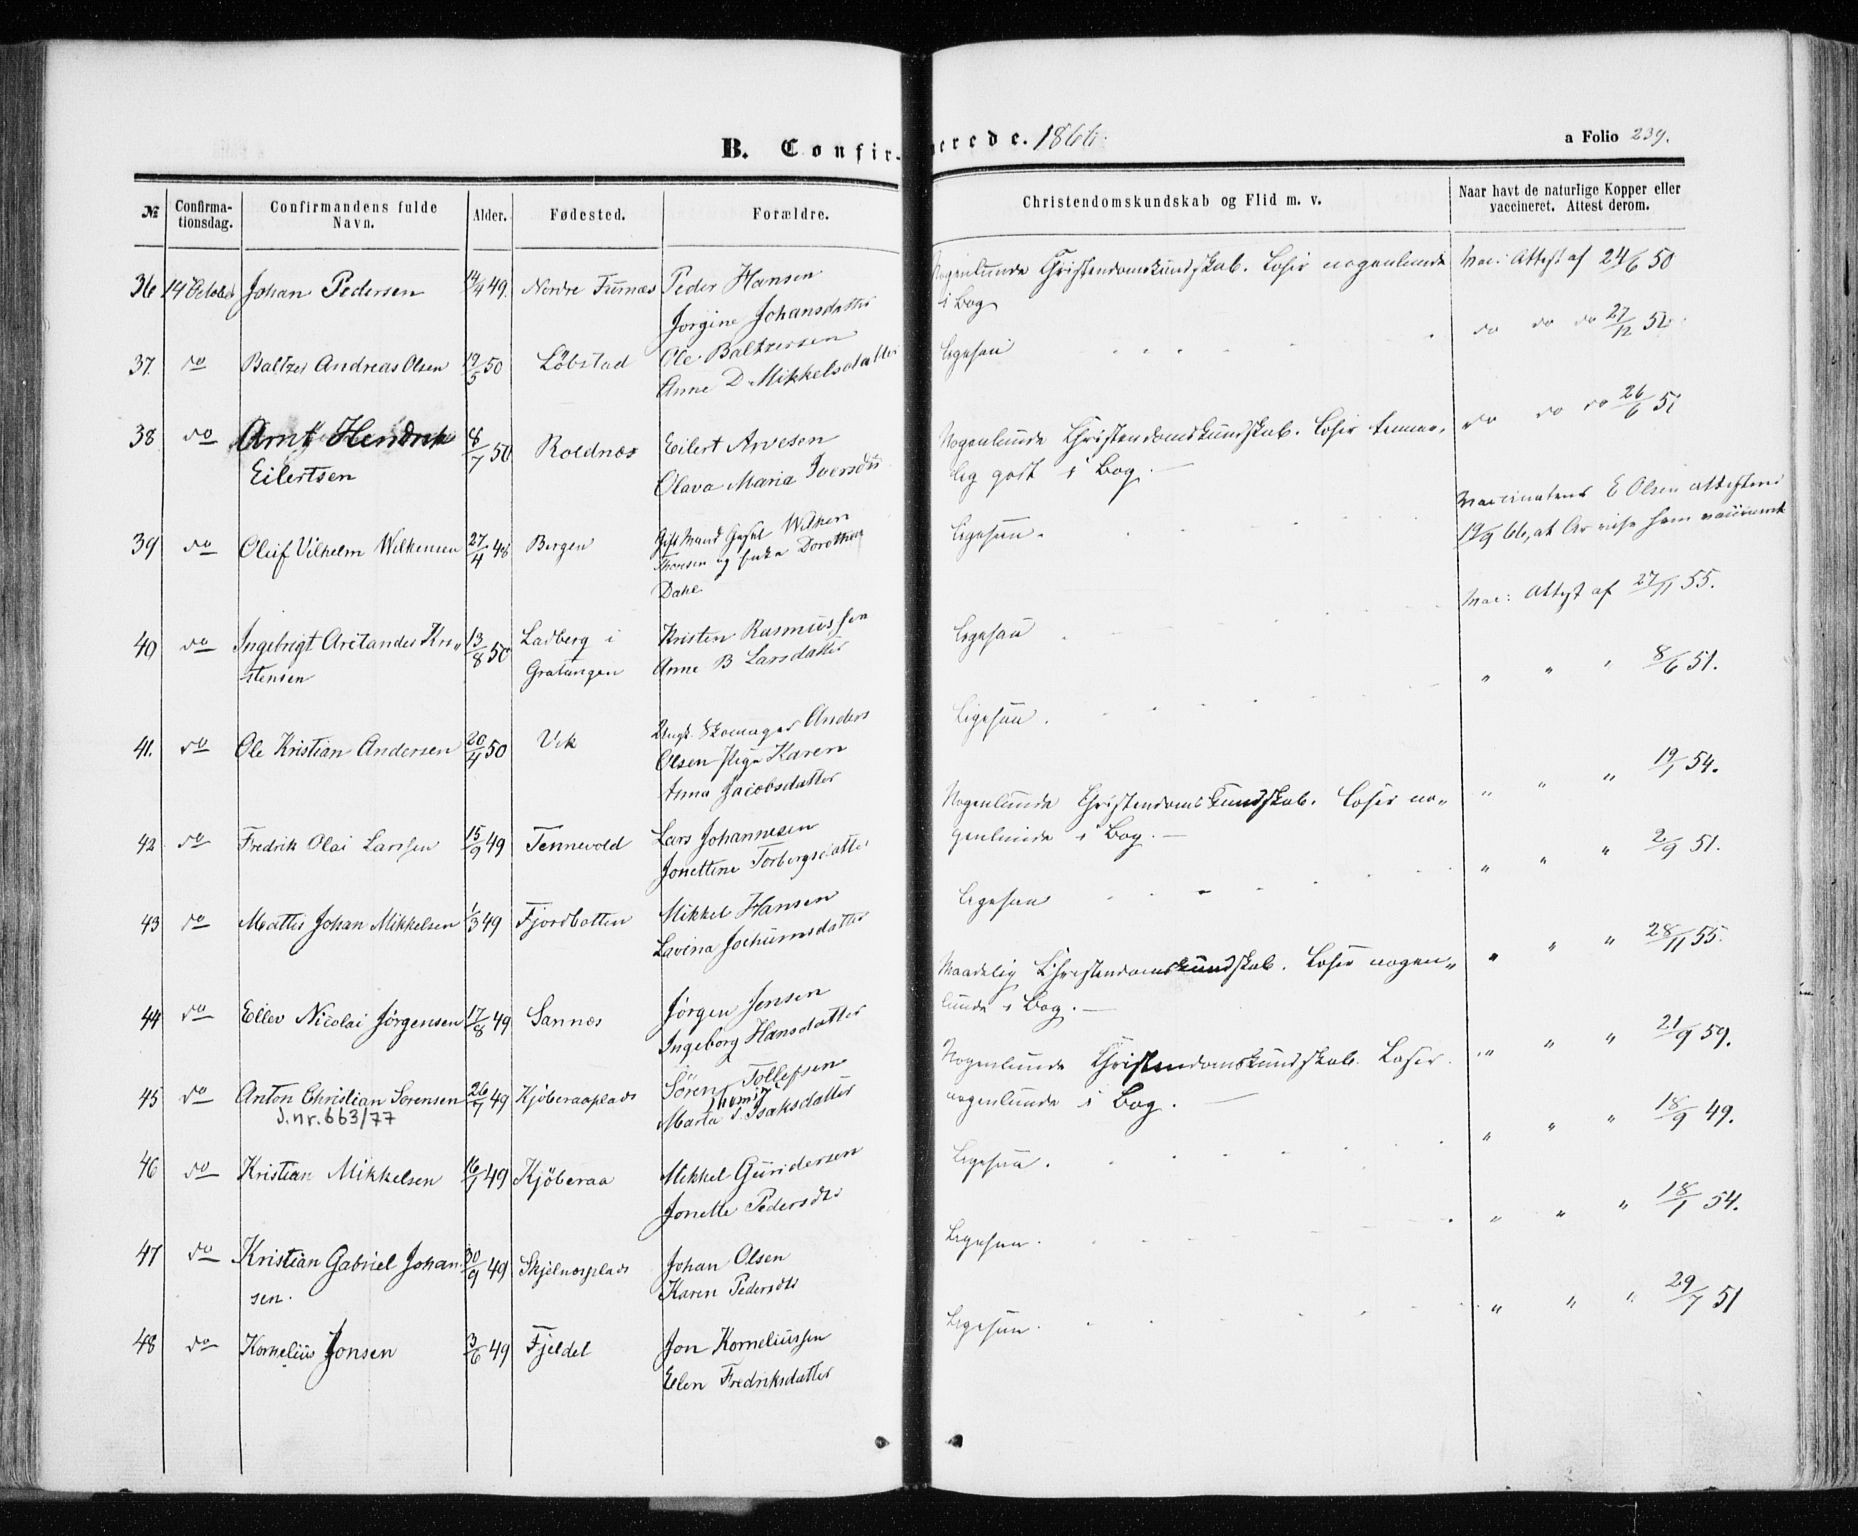 B. Confirmerede. 1866.
a Folio 239.
№ Confirmationsdag. Confirmandens fulde Navn. Alder. Fødested. Forældre. Christendomskundskab og Flid m. v. Naar havt de naturlige Kopper eller vaccineret. Attest derom.
36 14 October Johan Pedersen 14/4 49. Nordre Fursnæs Peder Hansen Nogenlunde Christendomskundskab. Læser nogenlunde Vac: Attest af 24/6 50
Jorgine Johansdatter i Bog
37. do Baltzer Andreas Olsen 12/5 50 Løbstad Ole Baltzersen Ligesaa do do do 27/12 52.
Anne D Mikkelsdatter
38 do Arnt Hendrik 8/7 50 Roldnæs Eilert Arvesen Nogenlunde Christendomskundskab. Læser temme- do do do 26/6 51
Eilertsen Olava Maria Iversdtr lig godt i Bog.
39 do Oluf Vilhelm Wilkensen 27/4 48 Bergen Gift Mand Wilken Ligesaa. Vaccinateur E Olsen attesterer
Thoresen og Dorothea 66, at vaccineret
Dahl
40 do Ingebrigt Aretander Kri- 13/8 50 Ladberg i Kristen Rasmussen Ligesaa Vac: Attest af 27/11 55.
stensen Gratangen Anne B Larsdatter
41. do Ole Kristian Andersen 20/4 50 Vik Ungk. Skomager Anders Ligesaa. " " " 8/6 51.
Olsen Pige Karen
Anna Jacobsdatter
42 do Fredrik Olai Larssen 15/9 49 Tennevold Lars Johannesen Nogenlunde Christendomskundskab. Læser no- " " " 19/1 54.
Jonettine Torbergsdatter genlunde i Bog.
43 do Mattis Johan Mikkelsen 1/3 49 Fjordbotten Mikkel Hansen Ligesaa " " " 2/9 51.
Lavina Jochumsdatter
44 do Ellev Nicolai Jørgensen 17/8 49 Sannæs Jørgen Jensen Maadelig Christendomskundskab. Læser nogen- " " " 28/11 55.
Ingeborg Hansdatter lunde i Bog.
45 do Anton Christian Sørensen 26/7 49 Kjøberaaplads Sören Tollefsen Nogenlunde Christendomskundskab. Læser " " " 21/9 59.
J.nr. 663/77 Marta T. Isaksdatter nogenlunde i Bog.
46 do Kristian Mikkelsen 16/1 49 Kjøberaa Mikkel Gundersen Ligesaa. " " " 18/9 49.
Jonette Pedersdtr
47 do Kristian Gabriel Johan- 30/9 49 Skjelnesplads Johan Olsen Ligesaa. " " " 18/1 54.
sen. Karen Pedersdtr
48 do Kornelius Jonsen 3/6 49 Fjeldet Jon Korneliussen Ligesaa. " " " 29/7 51
Elen Fredriksdatter